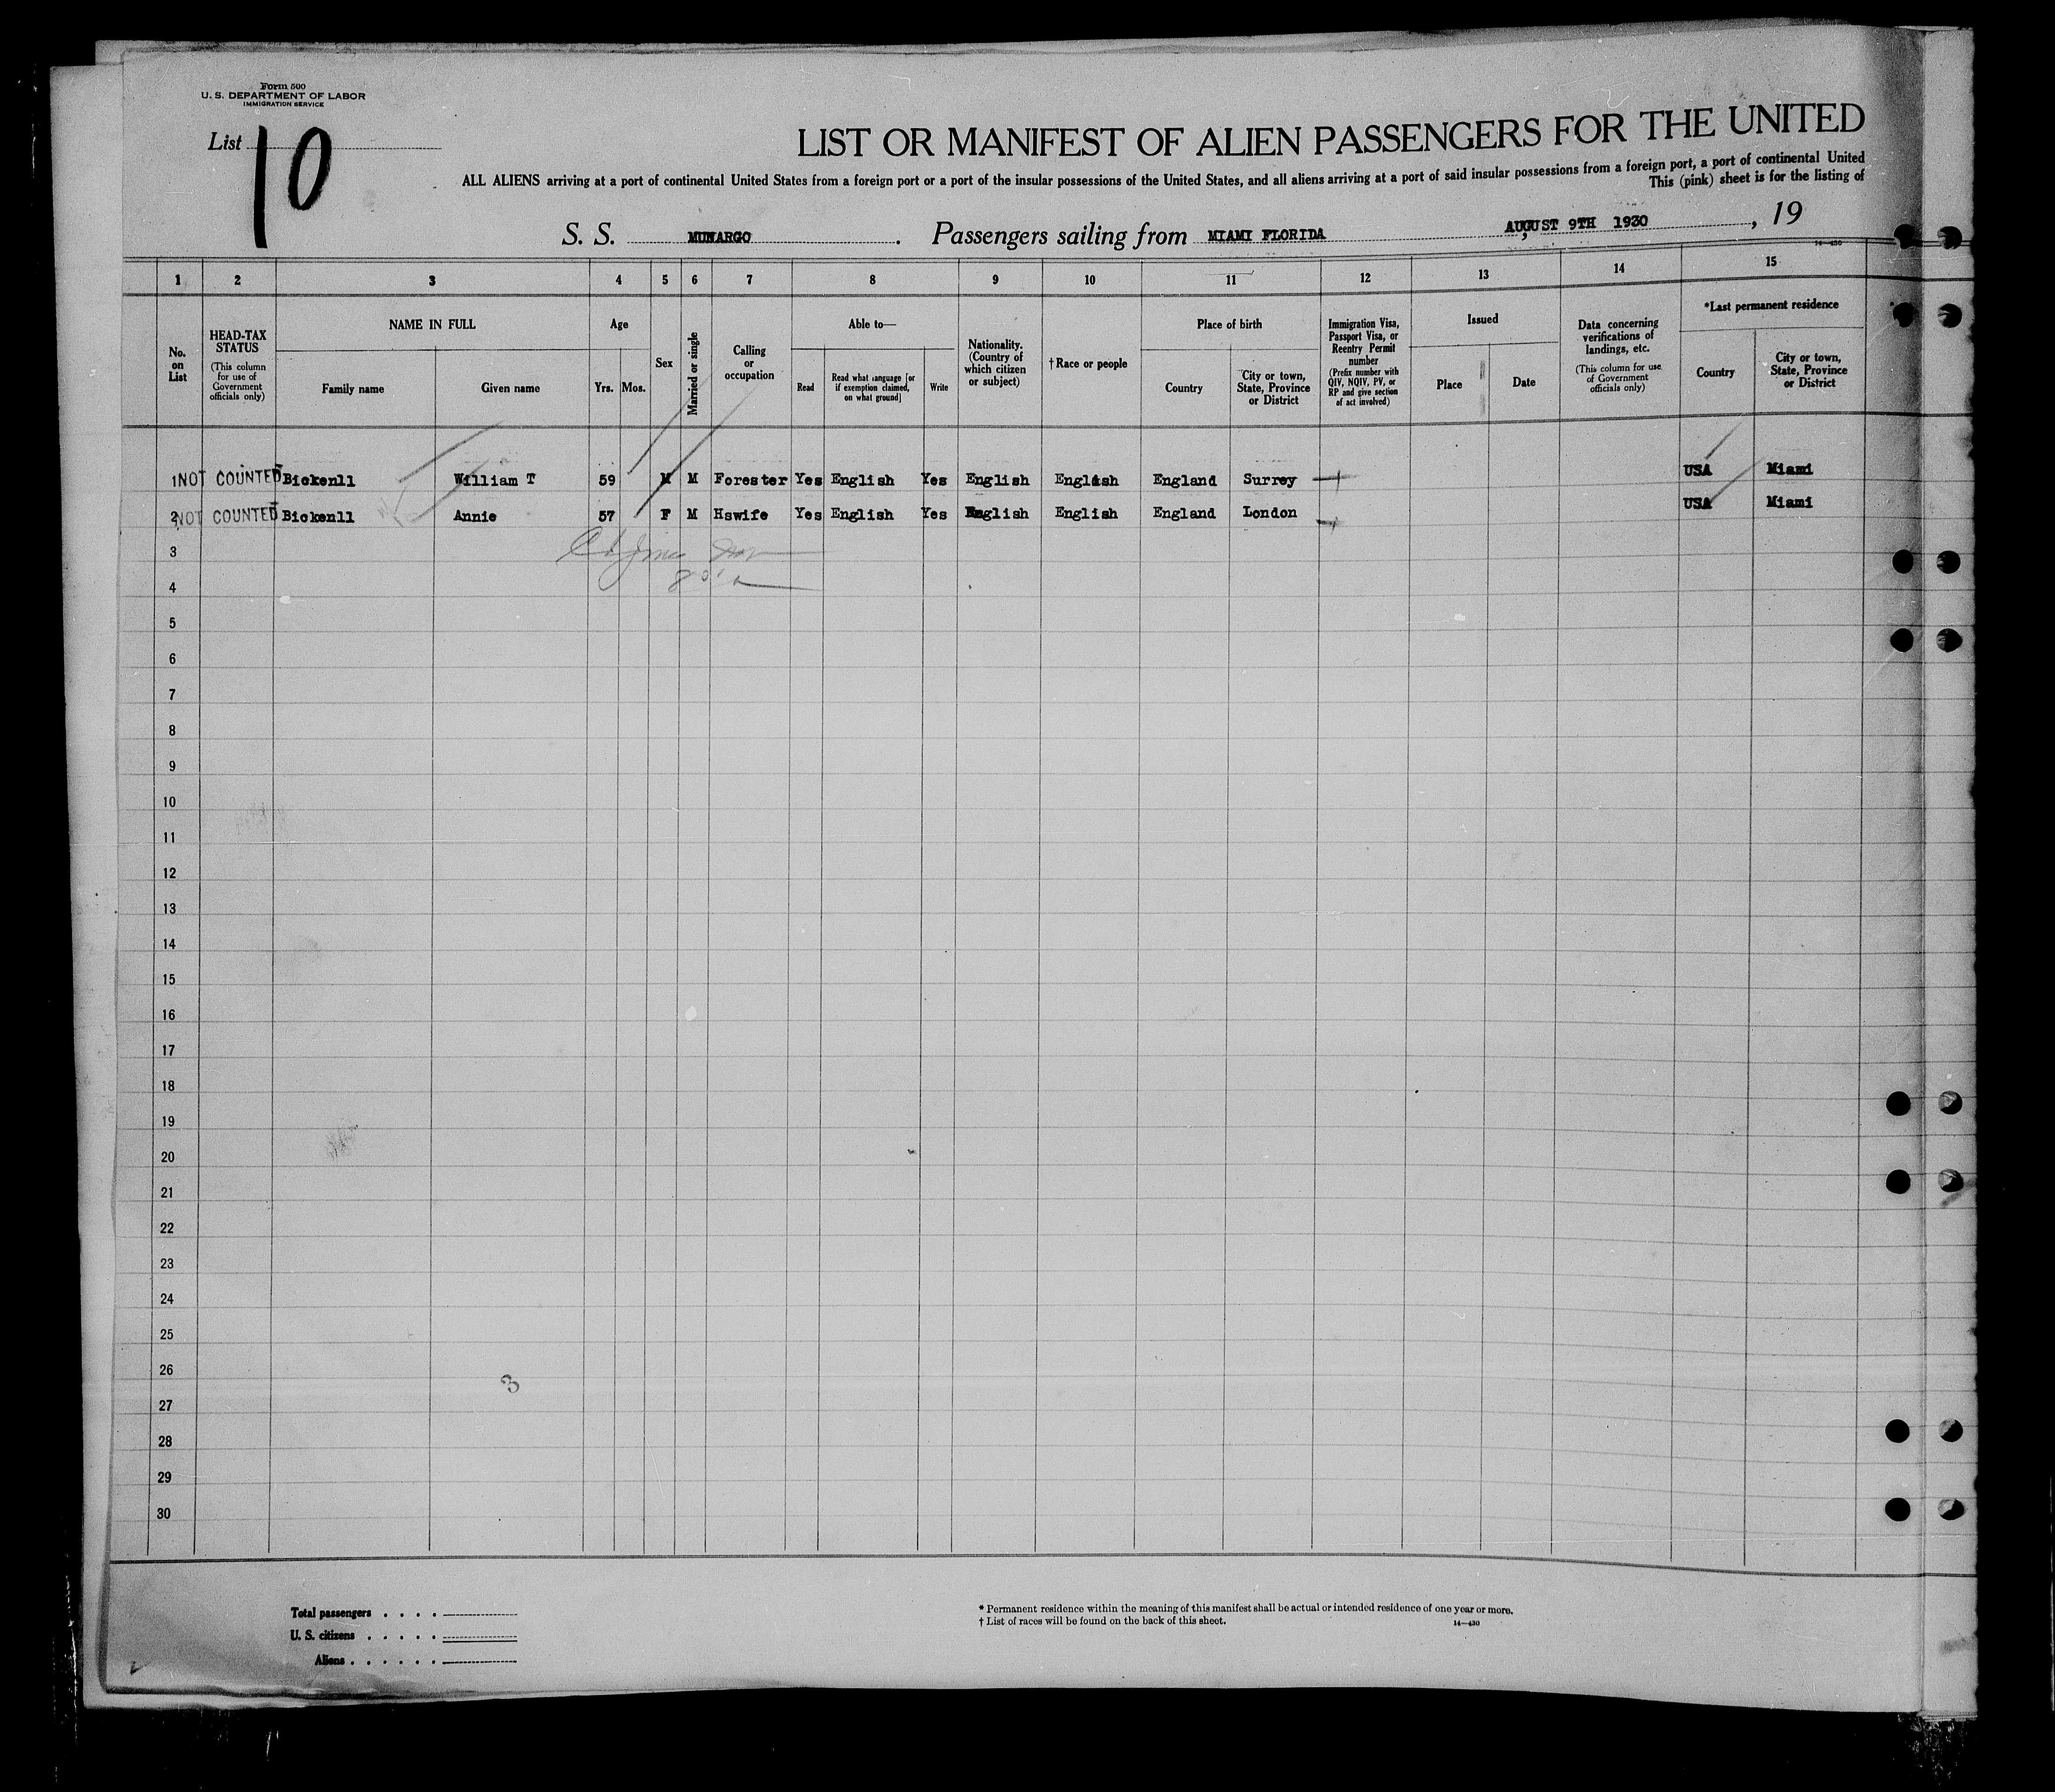 Form 500
U. S. DEPARTMENT OF LABOR
IMMIGRATION SERVICE
List 10
LIST OR MANIFEST OF ALIEN PASSENGERS FOR THE UNITED
ALL ALIENS arriving at a port of continental United States from a foreign port or a port of the insular possessions of the United States, and all aliens arriving at a port of said insular possessions from a foreign port, a port of continental United
This (pink) sheet is for the listing of
S. S. MUNARGO . Passengers sailing from MIAMI FLORIDA AUGUST 9TH 1930 , 19
14—430
1 2 3 4 5 6 7 8 9 10 11 12 13 14 15
No. on List
HEAD-TAX STATUS
(This column for use of Government officials only)
NAME IN FULL
Family name
Given name
Age
Yrs. Mos.
Sex
Married or single
Calling or occupation
Able to—
Read
Read what language [or if exemption claimed, on what ground]
Write
Nationality. (Country of which citizen or subject)
† Race or people
Place of birth
Country
City or town, State, Province or District
Immigration Visa, Passport Visa, or Reentry Permit number
(Prefix number with QIV, NQIV, PV, or RP and give section of act involved)
Issued
Place
Date
Data concerning verifications of landings, etc.
(This column for use of Government officials only)
*Last permanent residence
Country
City or town, State, Province or District
1 NOT COUNTED Bickenll William T 59 M M Forester Yes English Yes English English England Surrey USA Miami
2 NOT COUNTED Bickenll Annie 57 F M Hswife Yes English Yes English English England London USA Miami
3
4
5
6
7
8
9
10
11
12
13
14
15
16
17
18
19
20
21
22
23
24
25
26
3
27
28
29
30
Total passengers . . . .
U. S. citizens . . . . .
Aliens . . . . . .
* Permanent residence within the meaning of this manifest shall be actual or intended residence of one year or more.
† List of races will be found on the back of this sheet.
14—430